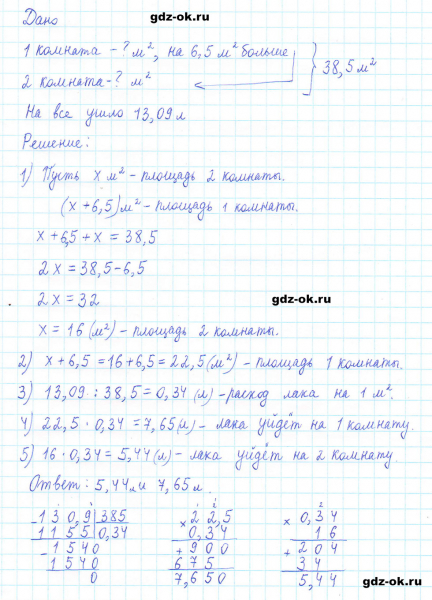 gdz-ok.ru
Дано
1 комната - ? м², на 6,5 м² больше
2 комната - ? м²
38,5 м²
На все ушло 13,09 л
Решение:
1) Пусть x м² - площадь 2 комнаты.
(x + 6,5) м² - площадь 1 комнаты.
x + 6,5 + x = 38,5
2x = 38,5 - 6,5
2x = 32
gdz-ok.ru
x = 16 (м²) - площадь 2 комнаты.
2) x + 6,5 = 16 + 6,5 = 22,5 (м²) - площадь 1 комнаты.
3) 13,09 : 38,5 = 0,34 (л) - расход лака на 1 м².
4) 22,5 · 0,34 = 7,65 (л) - лака уйдёт на 1 комнату.
5) 16 · 0,34 = 5,44 (л) - лака уйдёт на 2 комнату.
Ответ: 5,44 л и 7,65 л.
130,9 | 385
1155 | 0,34
- 1540
1540
0
2 2,5
× 0,34
+ 900
675
7,650
2
× 0,34
16
+ 204
34
5,44
gdz-ok.ru